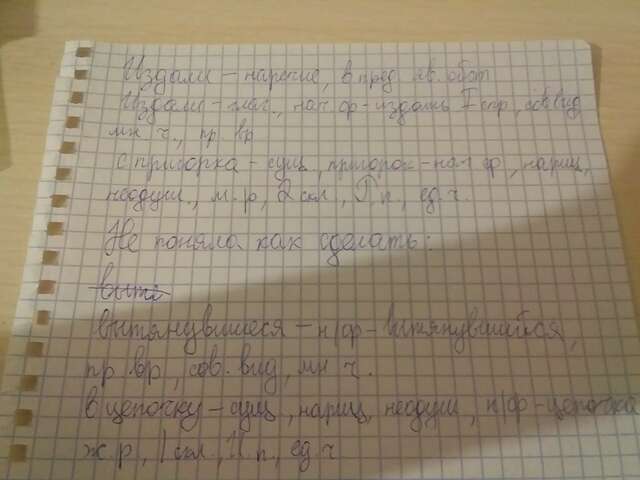 Издали – наречие, в пред. яв. обст
Издали – глаг., нач ф – издать I спр, сов вид
мн ч., пр вр
с пригорка – сущ, пригорок – нач ф, нариц,
неодуш., м. р, 2 скл., Р п., ед. ч.
Не поняла как сделать:
вытянувшиеся – н/ф – вытянувшийся,
пр вр, сов. вид, мн ч.
в цепочку – сущ, нариц, неодуш, н/ф – цепочка
ж. р, 1 скл., И. п, ед. ч